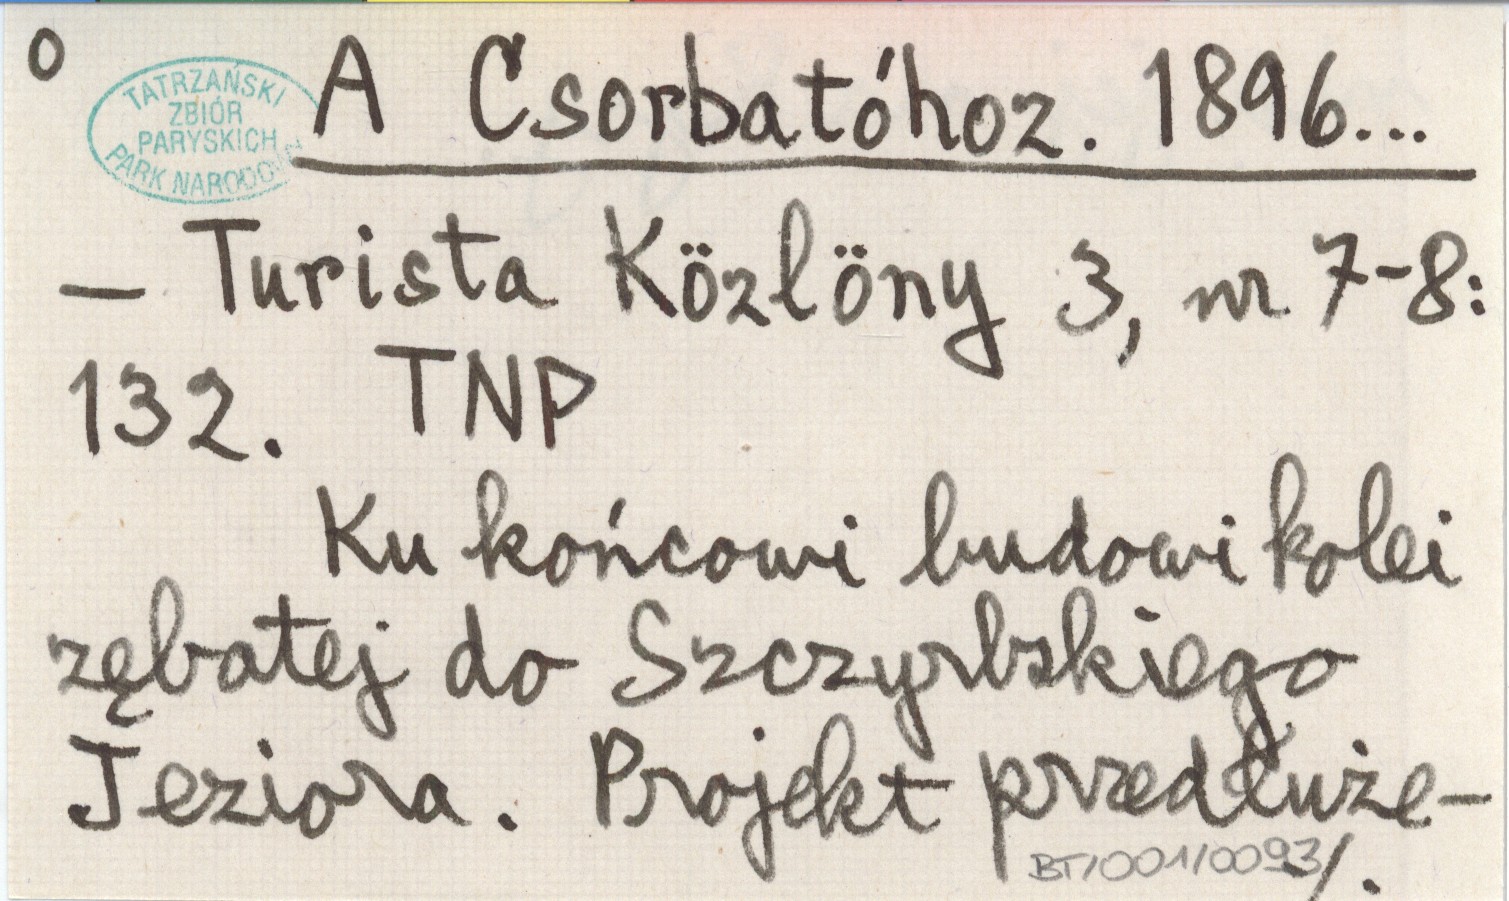 O
TATRZAŃSKI
ZBIÓR
PARYSKICH
PARK NARODOWY
A Csorbatóhoz. 1896...
— Turista Közlöny 3, nr 7-8:
132. TNP
Ku końcowi budowi kolei
zębatej do Szczyrbskiego
Jeziora. Projekt przedłuże-
BT/001/0093
/.